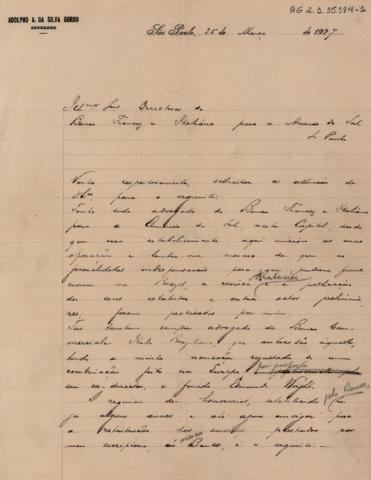 AG 2.1.35.184-1
ADOLPHO A. DA SILVA GORDO
ADVOGADO
São Paulo, 25 de Março de 1927
Illmos Snrs Directores do
Banco Francez e Italiano para a America do Sul
S. Paulo
Venho, respeitosamente, solicitar a attenção de
VSas para o seguinte:
Tenho sido advogado do Banco Francez e Italiano
para a America do Sul, nesta Capital, desde
que esse estabelecimento aqui iniciou as suas
operações e lembro-me mesmo de que as
formalidades indispensaveis para que pudesse func-
cionar no Brazil, a revisão e a publicação
dos seus estatutos e outros actos prelimina-
res, foram praticados por mim.
Fui tambem sempre advogado do Banco Com-
merciale Italo Braziliano, que antecedeu áquelle,
tendo a minha nomeação resultado de uma
combinação feita na Europa por proposta
seu ex-director, o finado Edmundo
O regimen de honorarios, estabelecido pelo Banco,
ja alguns annos e até agora em vigor para
a retribuição dos serviços prestados por
meu escriptorio, ao mesmo Banco, é o seguinte: